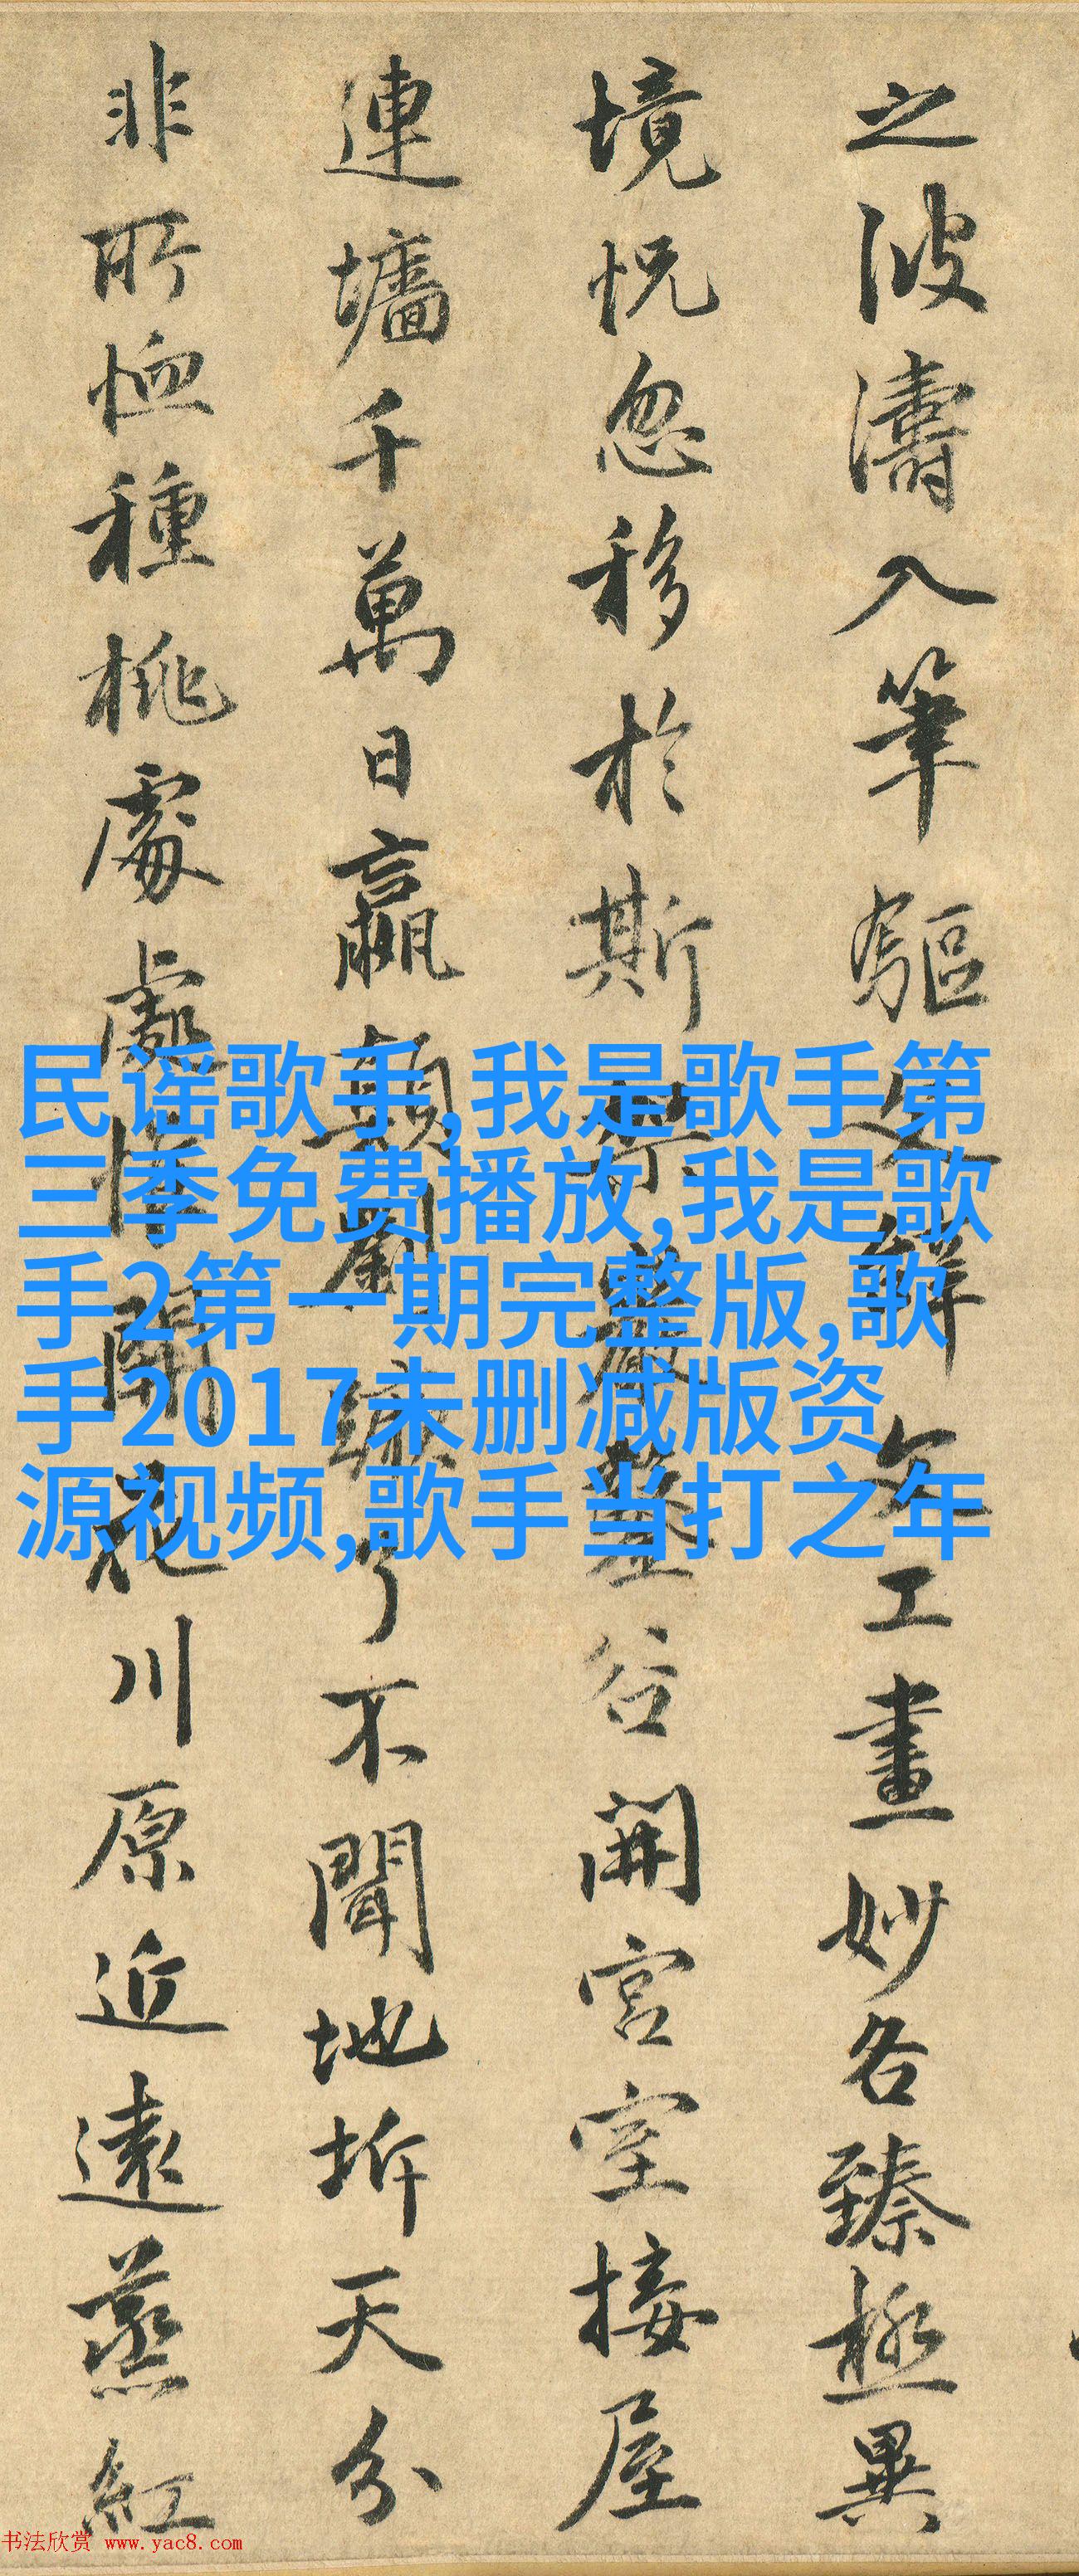 之波濤入筆驅文辭文工畫妙各臻極異
境怳忽移於斯架巖鑿谷開宮室接屋
連墻千萬日嬴顛劉蹶了不聞地坼天分
非所恤種桃處處惟開花川原近遠蒸紅
民谣歌手,我是歌手第
三季免费播放,我是歌
手2第一期完整版,歌
手2017未删减版资
源视频,歌手当打之年
书法欣赏 www.yac8.com